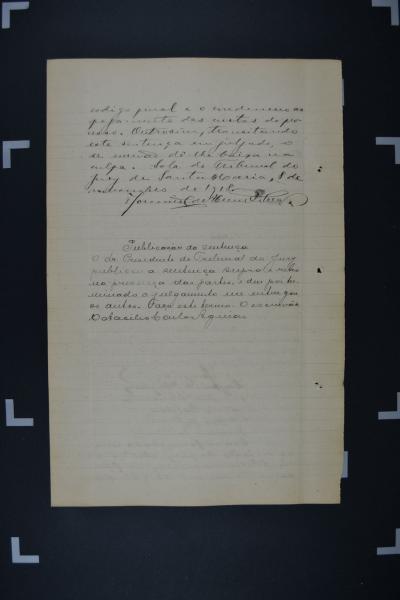 codigo penal e o condemno ao
pagamento das custas do pro-
cesso. Outrosim, transitando
esta sentença em julgado, o
escrivão dê-lhe baixa na
culpa. Sala do Tribunal do
jury de Santa Maria, 8 de
novembro de 1918.
Publicação da sentença
O dr. Presidente do Tribunal do Jury
publicou a sentença supra e retro
na presença das partes, e deu por ter-
minado o julgamento me entregou
os autos. Faço este termo. O escrivão
Octacilio Carlos